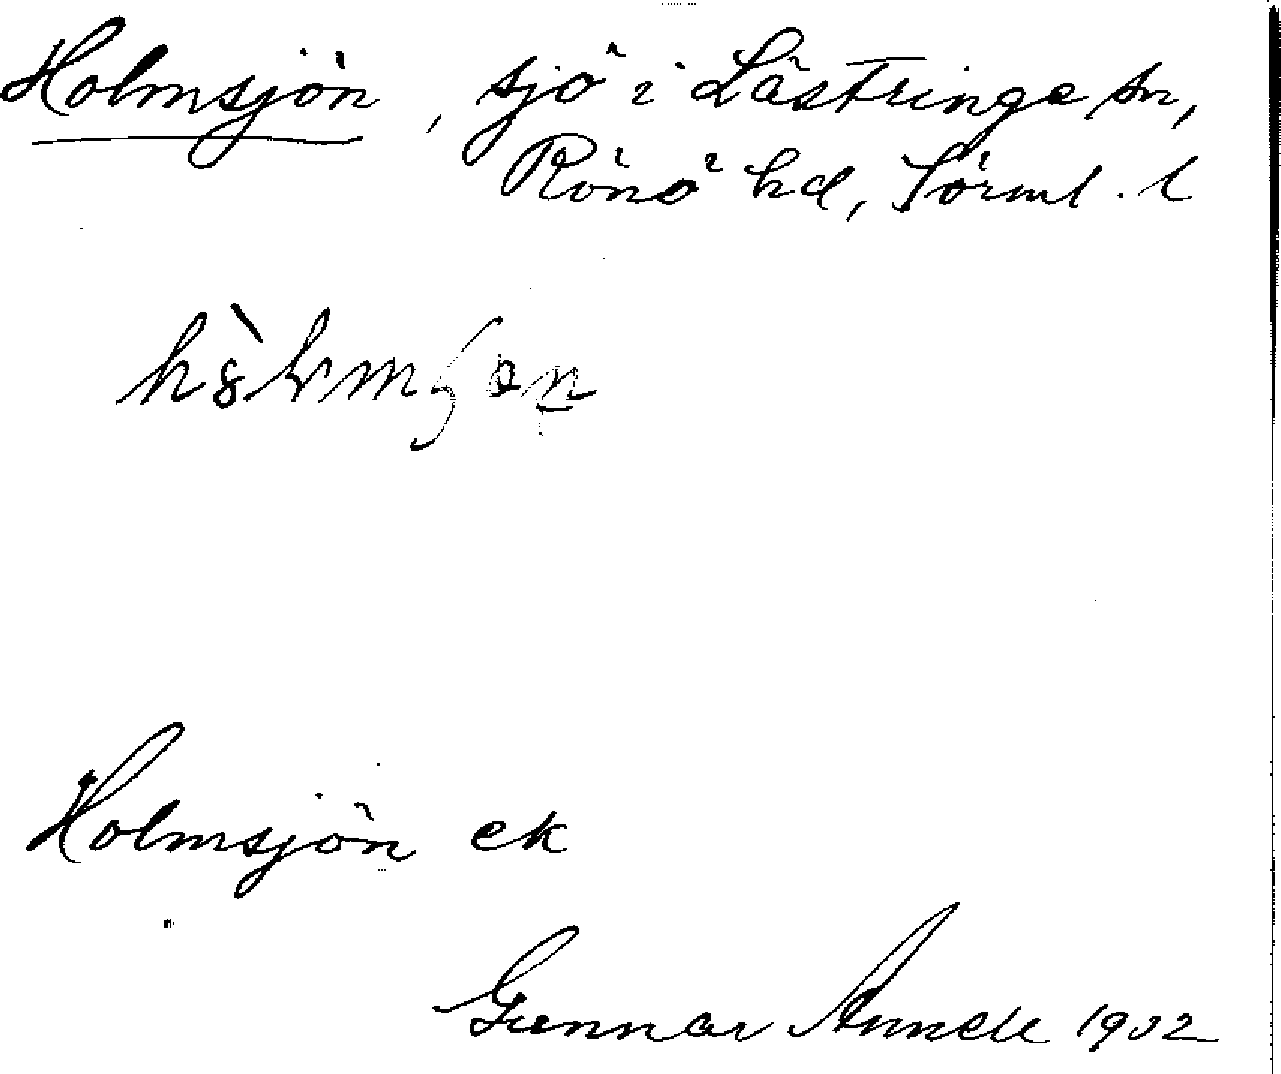 Holmsjön, sjö i Lästringe sn,
Rönö hd, Sörml. l
Holmsjön ek
Gunnar Annell 1932